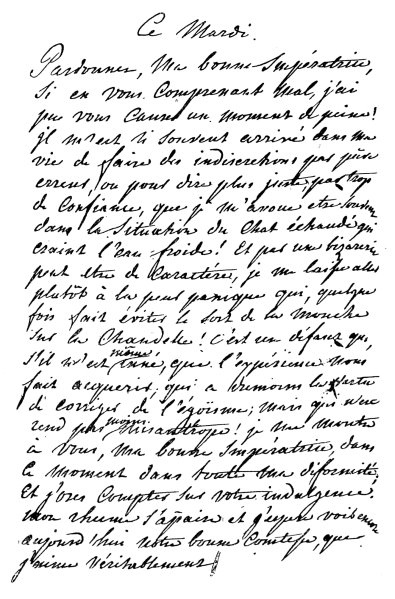 Ce Mardi.
Pardonnez, Ma bonne Impératrice,
Si en vous Comprenant mal, j'ai
pu vous Causer un moment de peine!
Il m'est si souvent arrivé dans ma
vie de faire des indiscretions par pure
erreur, ou pour dire plus juste, par trop
de Confiance, que je m'avoue etre souvent
dans la Situation du Chat échaudé qui
craint l'eau froide! Et par une bizarerie
peut etre de Caractére, je me laisse aller
plutôt à la peur panique qui, quelque
fois fait éviter le sort de la mouche
sur la Chandelle! C'est un défaut qui,
s'il n'est même inné, que l'expérience nous
fait acquerir, qui a dumoins la vertu
de corriger de l'égoïsme; mais qui n'en
rend pas moins misantrope! je me montre
à vous, Ma bonne Impératrice, dans
ce moment dans toute ma diformité;
Et j'ose Compter sur votre indulgence.
mon rhume s'apaise et j'espere voir encore
aujourd'hui notre bonne Comtesse, que
j'aime véritablement!